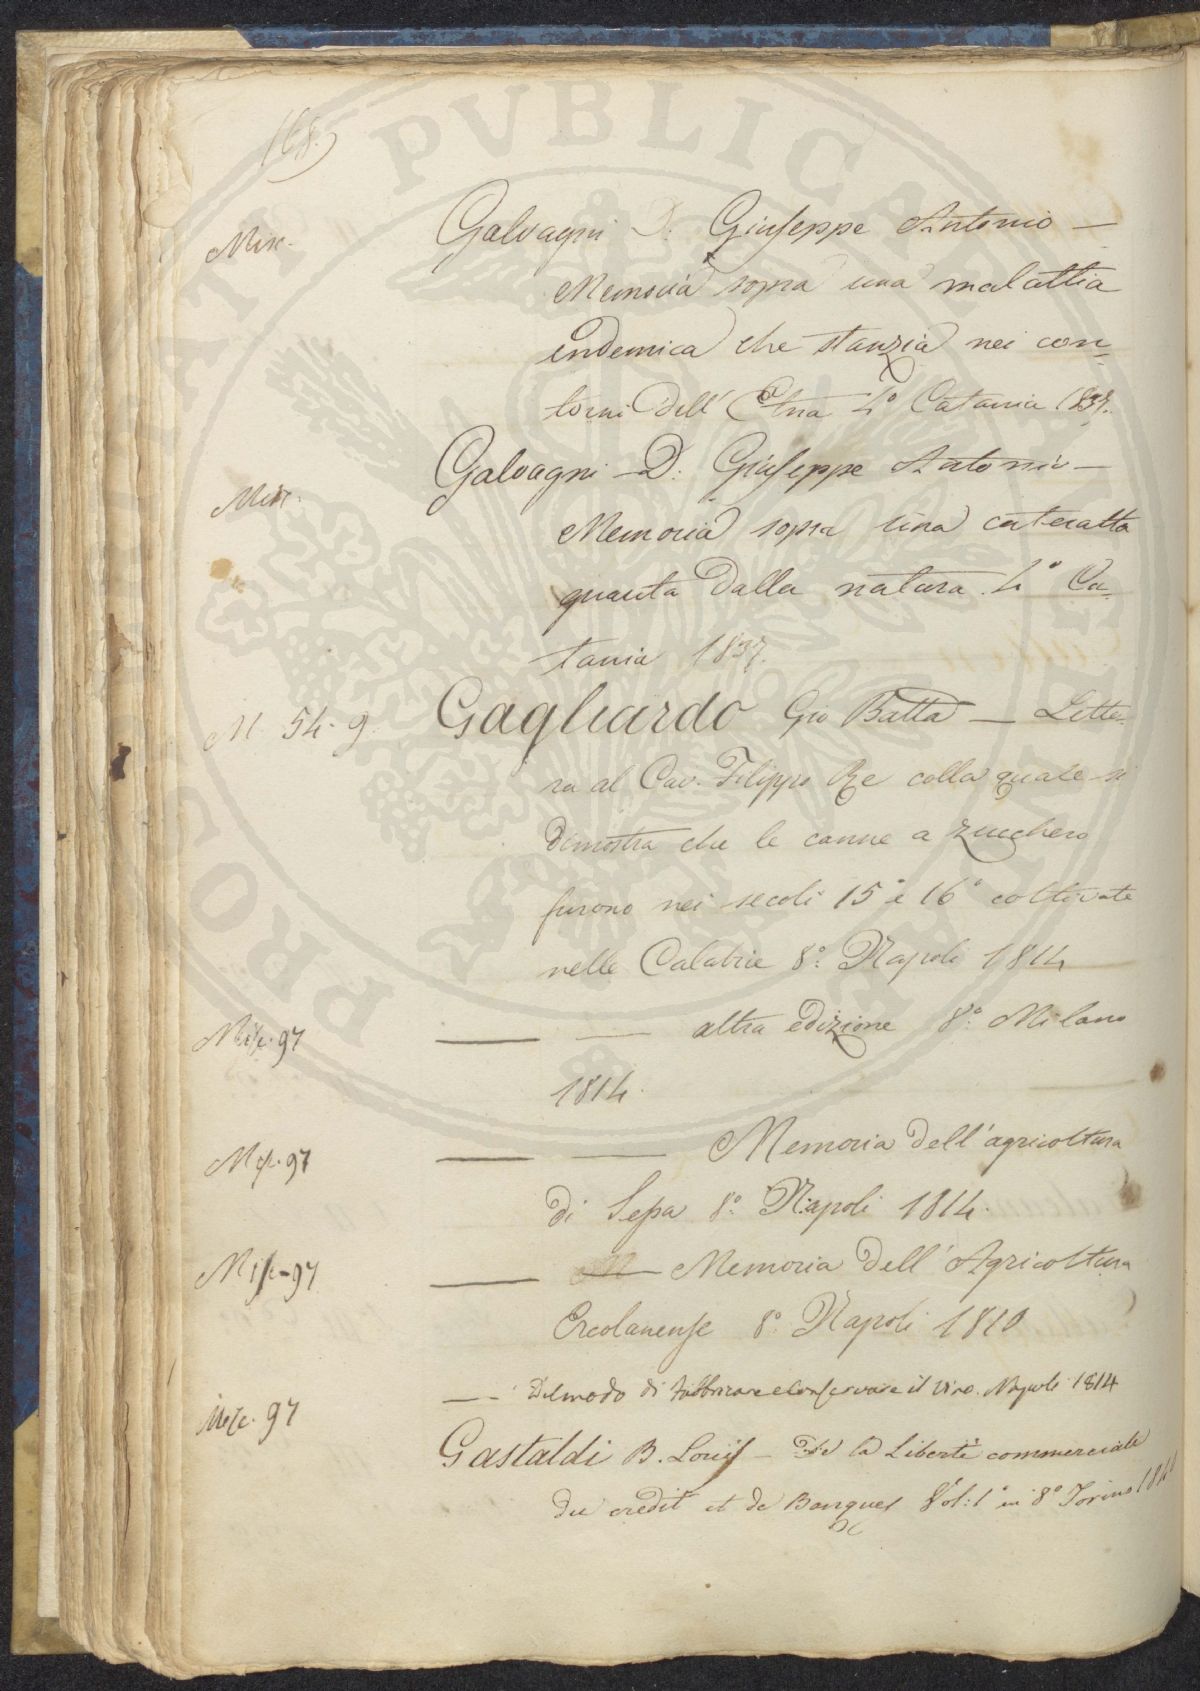 168.
Misc. Galvagni D. Giuseppe Antonio —
Memoria sopra una malattia
endemica che stanzia nei con-
torni dell' Etna 4° Catania 1837.
Misc. Galvagni D. Giuseppe Antonio —
Memoria sopra una cateratta
guarita dalla natura. 4° Ca-
tania 1837.
M 54-9. Gagliardo Gio Batta — Lette-
ra al Cav. Filippo Re colla quale si
dimostra che le canne a zucchero
furono nei secoli 15° e 16° coltivate
nelle Calabrie 8°. Napoli 1814
Misc. 97 — — altra edizione 8°. Milano
1814.
Misc. 97 — — Memoria dell'agricoltura
di Sessa 8°. Napoli 1814.
Misc-97 — — Memoria dell'Agricoltura
Ercolanense 8°. Napoli 1810
Misc. 97 — — Del modo di fabbricare e conservare il vino. Napoli 1814
Gastaldi B. Louis — De la Liberté commerciale
du credit et de Banques Vol: 1° in 8° Torino
PROSPERITATI PVBLICAE AVGENDAE